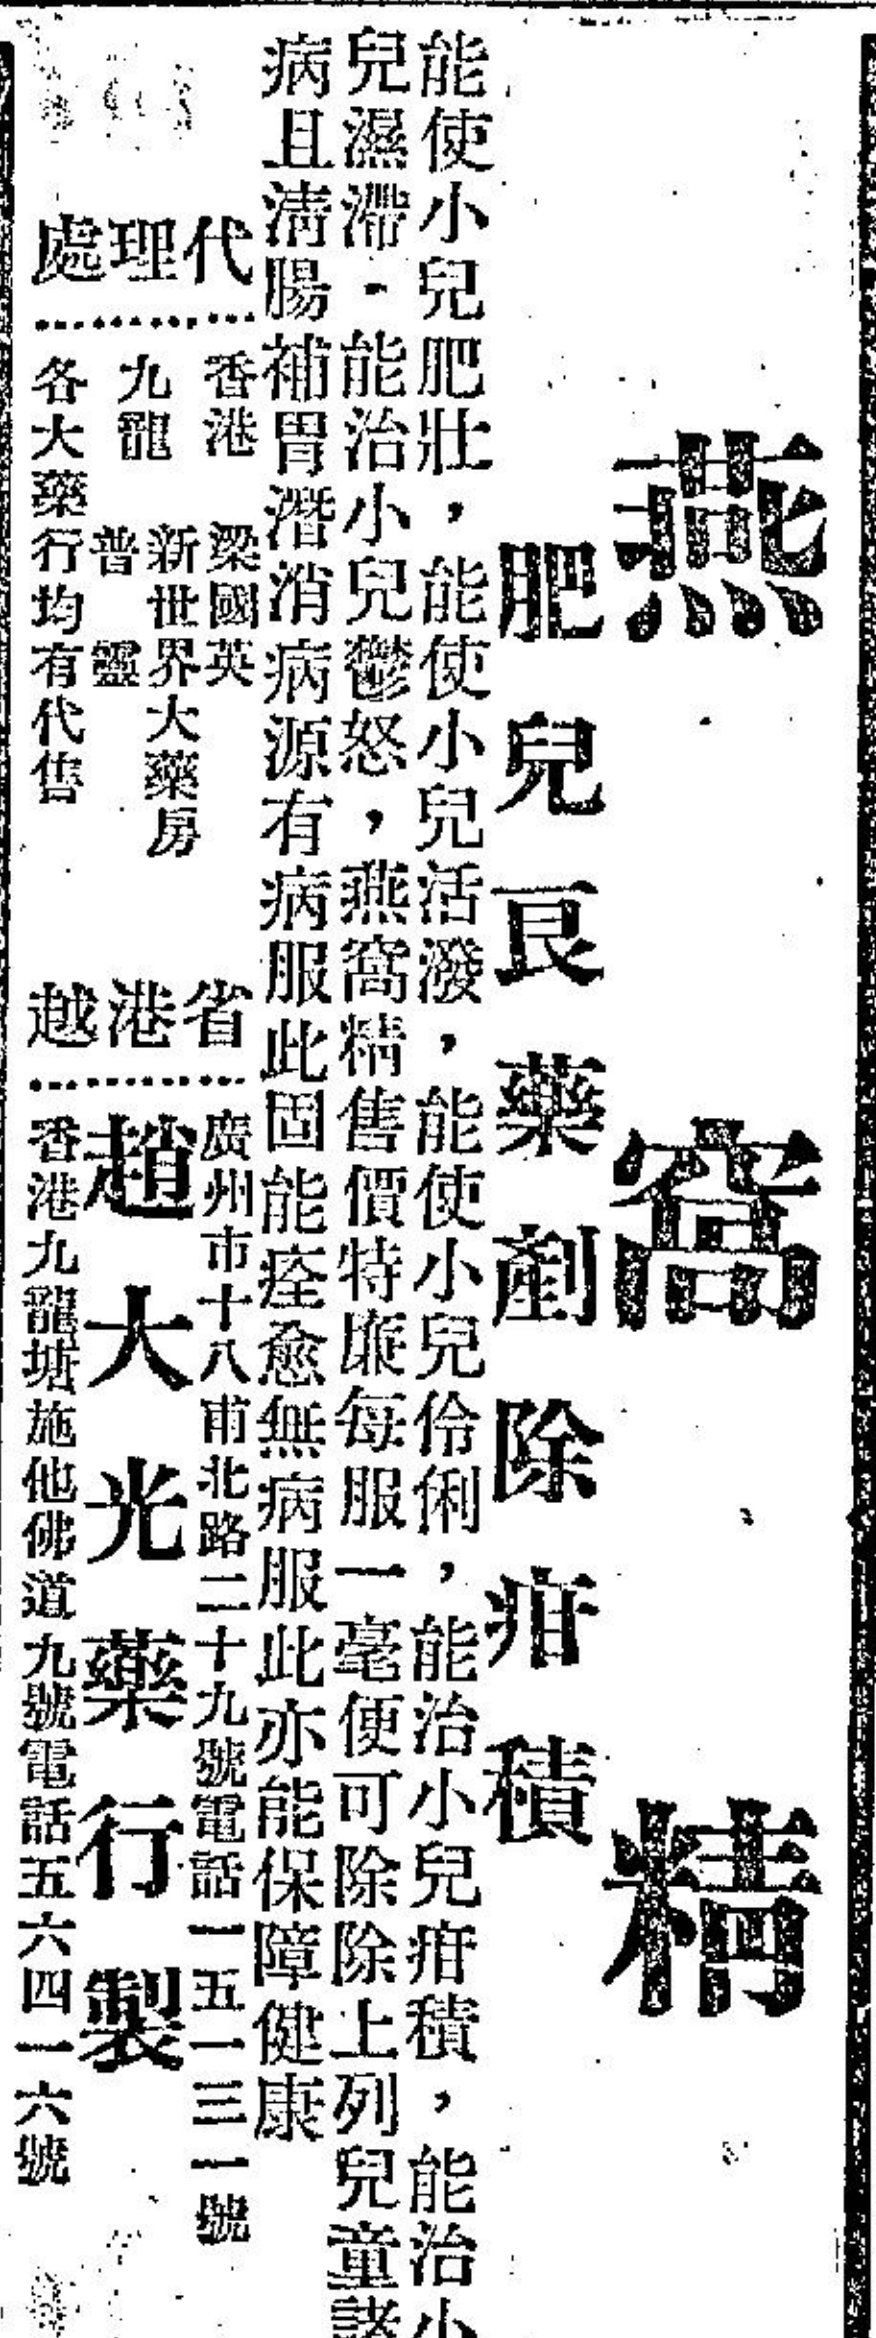 燕窩精
肥兒良藥剷除疳積
能使小兒肥壯，能使小兒活潑，能使小兒伶俐，能治小兒疳積，能治小
兒濕滯．能治小兒鬱怒，燕窩精售價特廉每服一毫便可除除上列兒童諸
病且清腸補胃潛消病源有病服此固能痊愈無病服此亦能保障健康
代理處
香港 梁國英
九龍 新世界大藥房
普靈
各大藥行均有代售
省港越
廣州市十八甫北路二十九號電話一五一三一號
趙大光藥行製
香港九龍塘施他佛道九號電話五六四一六號